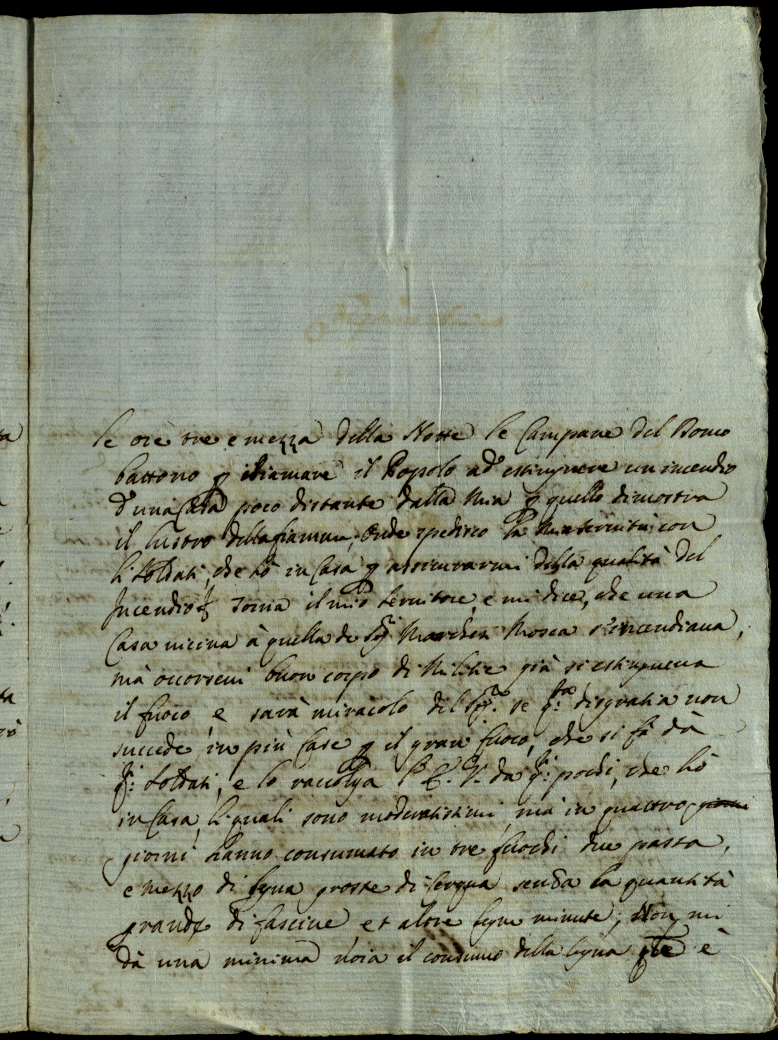 le ore tre e mezza della Notte le Campane del Domo
battono p chiamare il Popolo ad estinguere un incendio
d'una Casa poco distante dalla mia p quello dimostra
il lustro della fiamma, Onde spedisco la con
li Soldati, che hò in Casa p assicurarmi della qualità del
Incendio torna il mio servitore, e mi dice, che una
Casa vicina à quella de Sig.ri Mosca s'incendiava,
mà occorsevi buon corpo di Milizie già si estingueva
il fuoco, e sarà miracolo del Sig.re se q.ta disgratia non
succede in più Case p il gran fuoco, che si fà dà
q.ti Soldati, e lo raccolga V. E. V. da q.ti pochi, che hò
in Casa, li quali sono moderatissimi, mà in quattro
giorni hanno consumato in tre fuochi due passa,
e mezzo di legna grosse di senza la quantità
grande di fascine et altre legne minute; Non mi
dà una minima noia il consumo della legna è